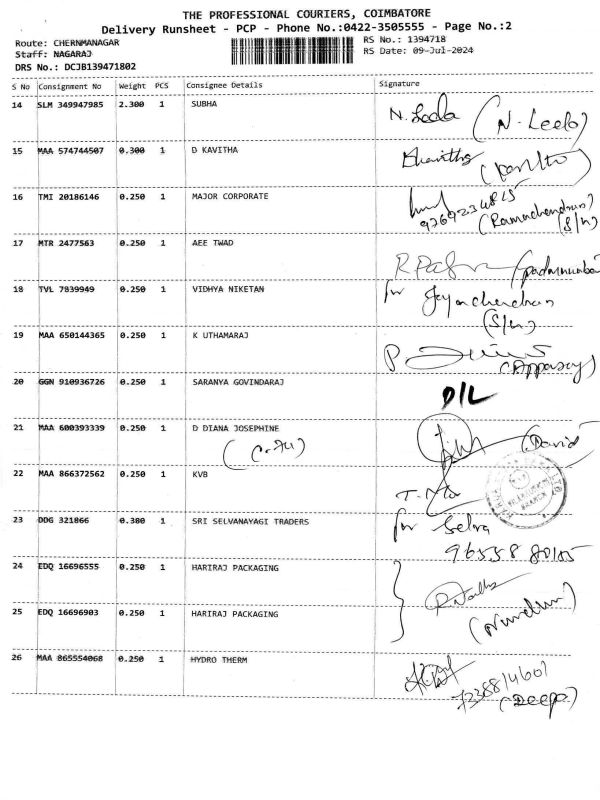 THE PROFESSIONAL COURIERS, COIMBATORE
Delivery Runsheet - PCP - Phone No.:0422-3505555 - Page No.:2
Route: CHERNMANAGAR
RS No.: 1394718
Staff: NAGARAJ
RS Date: 09-Jul-2024
DRS No.: DCJB139471802
S No Consignment No Weight PCS Consignee Details Signature
14 SLM 349947985 2.300 1 SUBHA N. Leela (N. Leela)
15 MAA 574744507 0.300 1 D KAVITHA
16 TMI 20186146 0.250 1 MAJOR CORPORATE
(Ramachendran)
(S/n)
17 MTR 2477563 0.250 1 AEE TWAD
18 TVL 7839949 0.250 1 VIDHYA NIKETAN for Jayachendran
(S/n)
19 MAA 650144365 0.250 1 K UTHAMARAJ
(Appasay)
20 GGN 910936726 0.250 1 SARANYA GOVINDARAJ D/L
21 MAA 600393339 0.250 1 D DIANA JOSEPHINE (David)
22 MAA 866372562 0.250 1 KVB
23 DDG 321866 0.380 1 SRI SELVANAYAGI TRADERS for Selva
24 EDQ 16696555 0.250 1 HARIRAJ PACKAGING
25 EDQ 16696903 0.250 1 HARIRAJ PACKAGING
26 MAA 865554068 0.250 1 HYDRO THERM
7338814601
(Deepa)